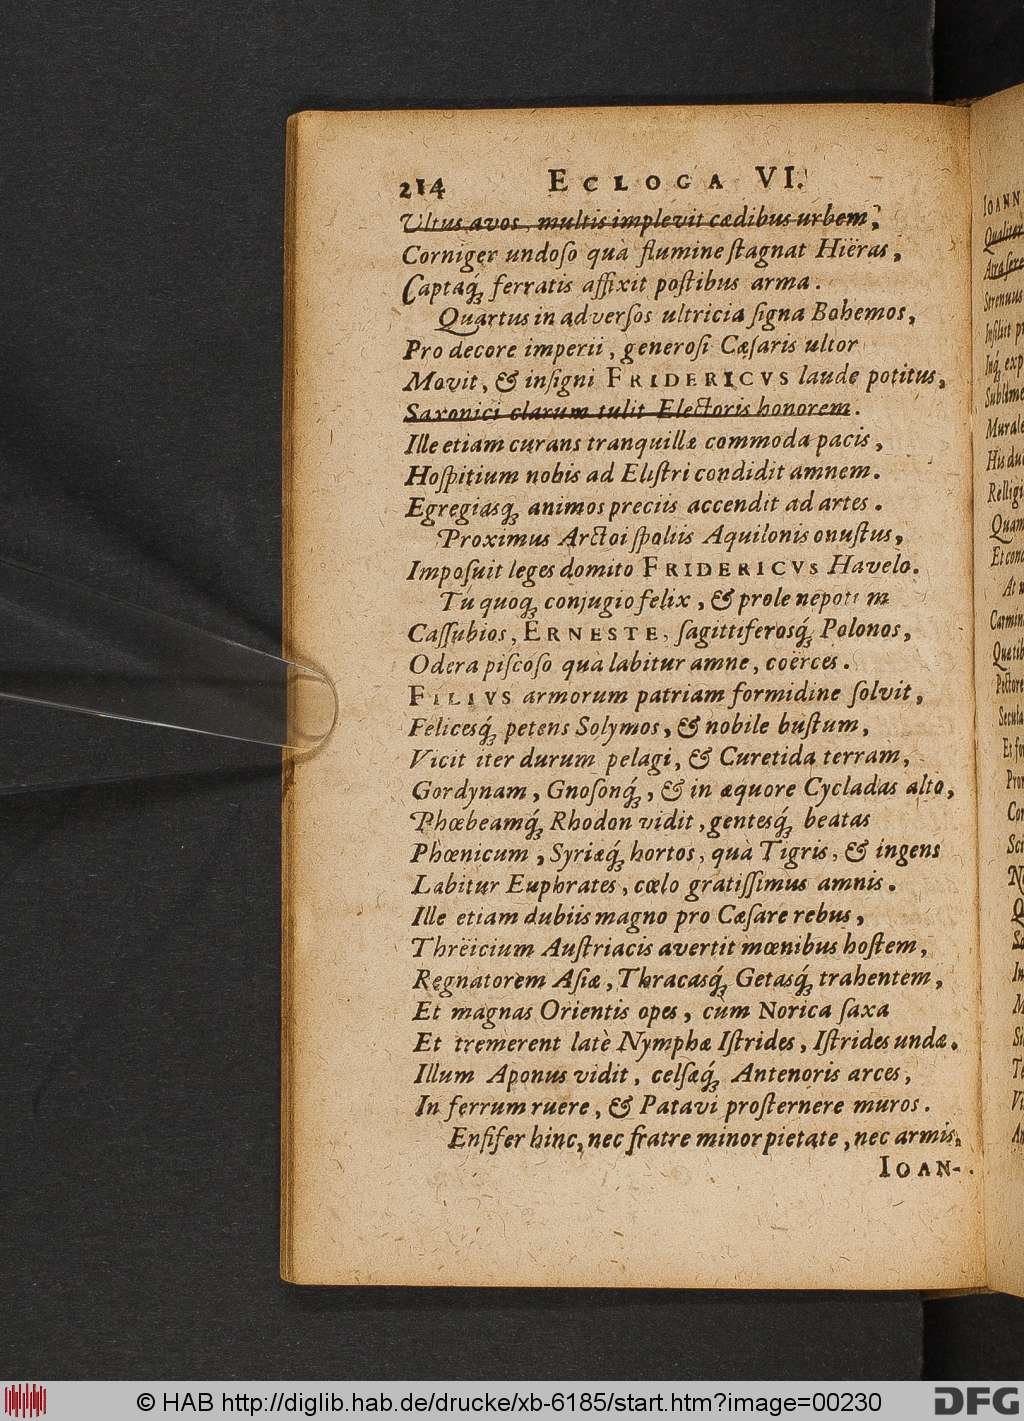 214 ECLOGA VI.
Ultus avos, multis implevit cædibus urbem,
Corniger undoſo quà flumine ſtagnat Hiëras,
Captaq́ꝫ ferratis affixit poſtibus arma.
Quartus in adverſos ultricia ſigna Bohemos,
Pro decore imperii, generoſi Cæſaris ultor
Movit, & inſigni FRIDERICVS laude potitus,
Saxonici clarum tulit Electoris honorem.
Ille etiam curans tranquillæ commoda pacis,
Hoſpitium nobis ad Eliſtri condidit amnem.
Egregiasqꝫ animos preciis accendit ad artes.
Proximus Arctoi ſpoliis Aquilonis onuſtus,
Impoſuit leges domito FRIDERICVS Havelo.
Tu quoqꝫ conjugio felix, & prole nepotum
Caſſubios, ERNESTE, ſagittiferosq́ꝫ Polonos,
Odera piſcoſo quà labitur amne, coërces.
FILIVS armorum patriam formidine ſolvit,
Felicesq́ꝫ petens Solymos, & nobile buſtum,
Vicit iter durum pelagi, & Curetida terram,
Gordynam, Gnoſonq́ꝫ, & in æquore Cycladas alto,
Phœbeamq́ꝫ Rhodon vidit, gentesq́ꝫ beatas
Phœnicum, Syriæq́ꝫ hortos, quà Tigris, & ingens
Labitur Euphrates, cœlo gratiſſimus amnis.
Ille etiam dubiis magno pro Cæſare rebus,
Thrëicium Auſtriacis avertit mœnibus hoſtem,
Regnatorem Aſiæ, Thracasq́ꝫ Getasq́ꝫ trahentem,
Et magnas Orientis opes, cùm Norica ſaxa
Et tremerent latè Nymphæ Iſtrides, Iſtrides undæ.
Illum Aponus vidit, celſæq́ꝫ Antenoris arces,
In ferrum ruere, & Patavi proſternere muros.
Enſifer hinc, nec fratre minor pietate, nec armis,
IOAN-
© HAB http://diglib.hab.de/drucke/xb-6185/start.htm?image=00230
DFG